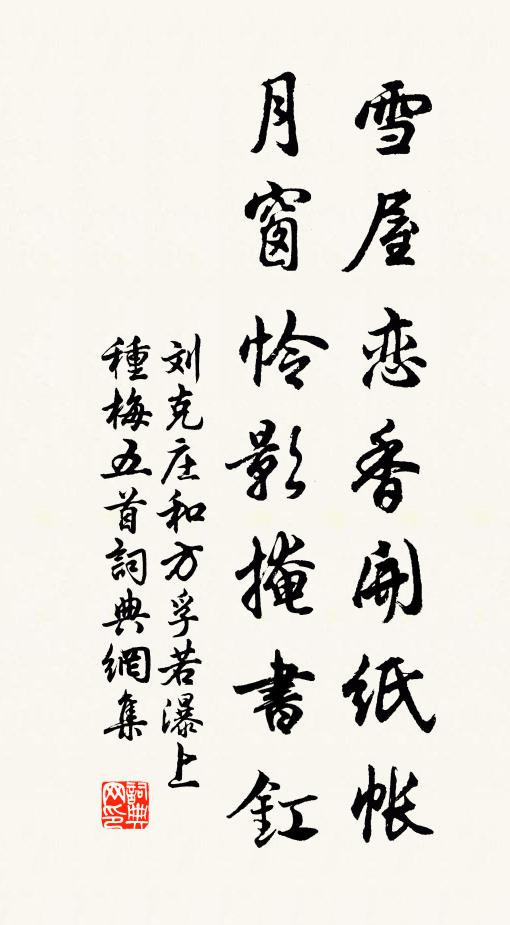 雪屋恋香開紙帳
月窗怜影掩書釭
刘克庄和方孚若瀑上
種梅五首詞典網集
詞典网印